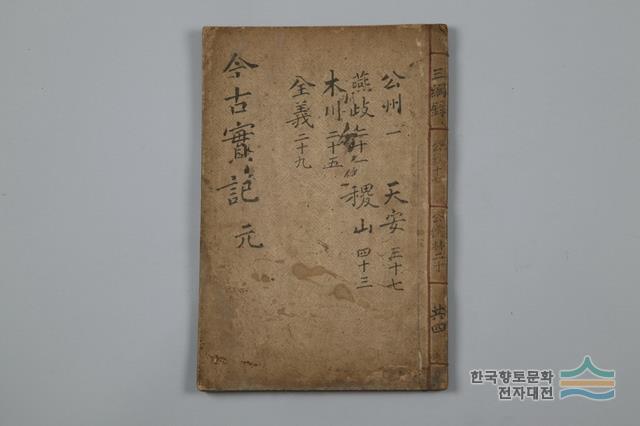 三綱錄
共四
公州 一
天安 三十七
燕岐
稷山 四十三
木川 二十五
全義 二十九
今古實記 元
한국향토문화
전자대전